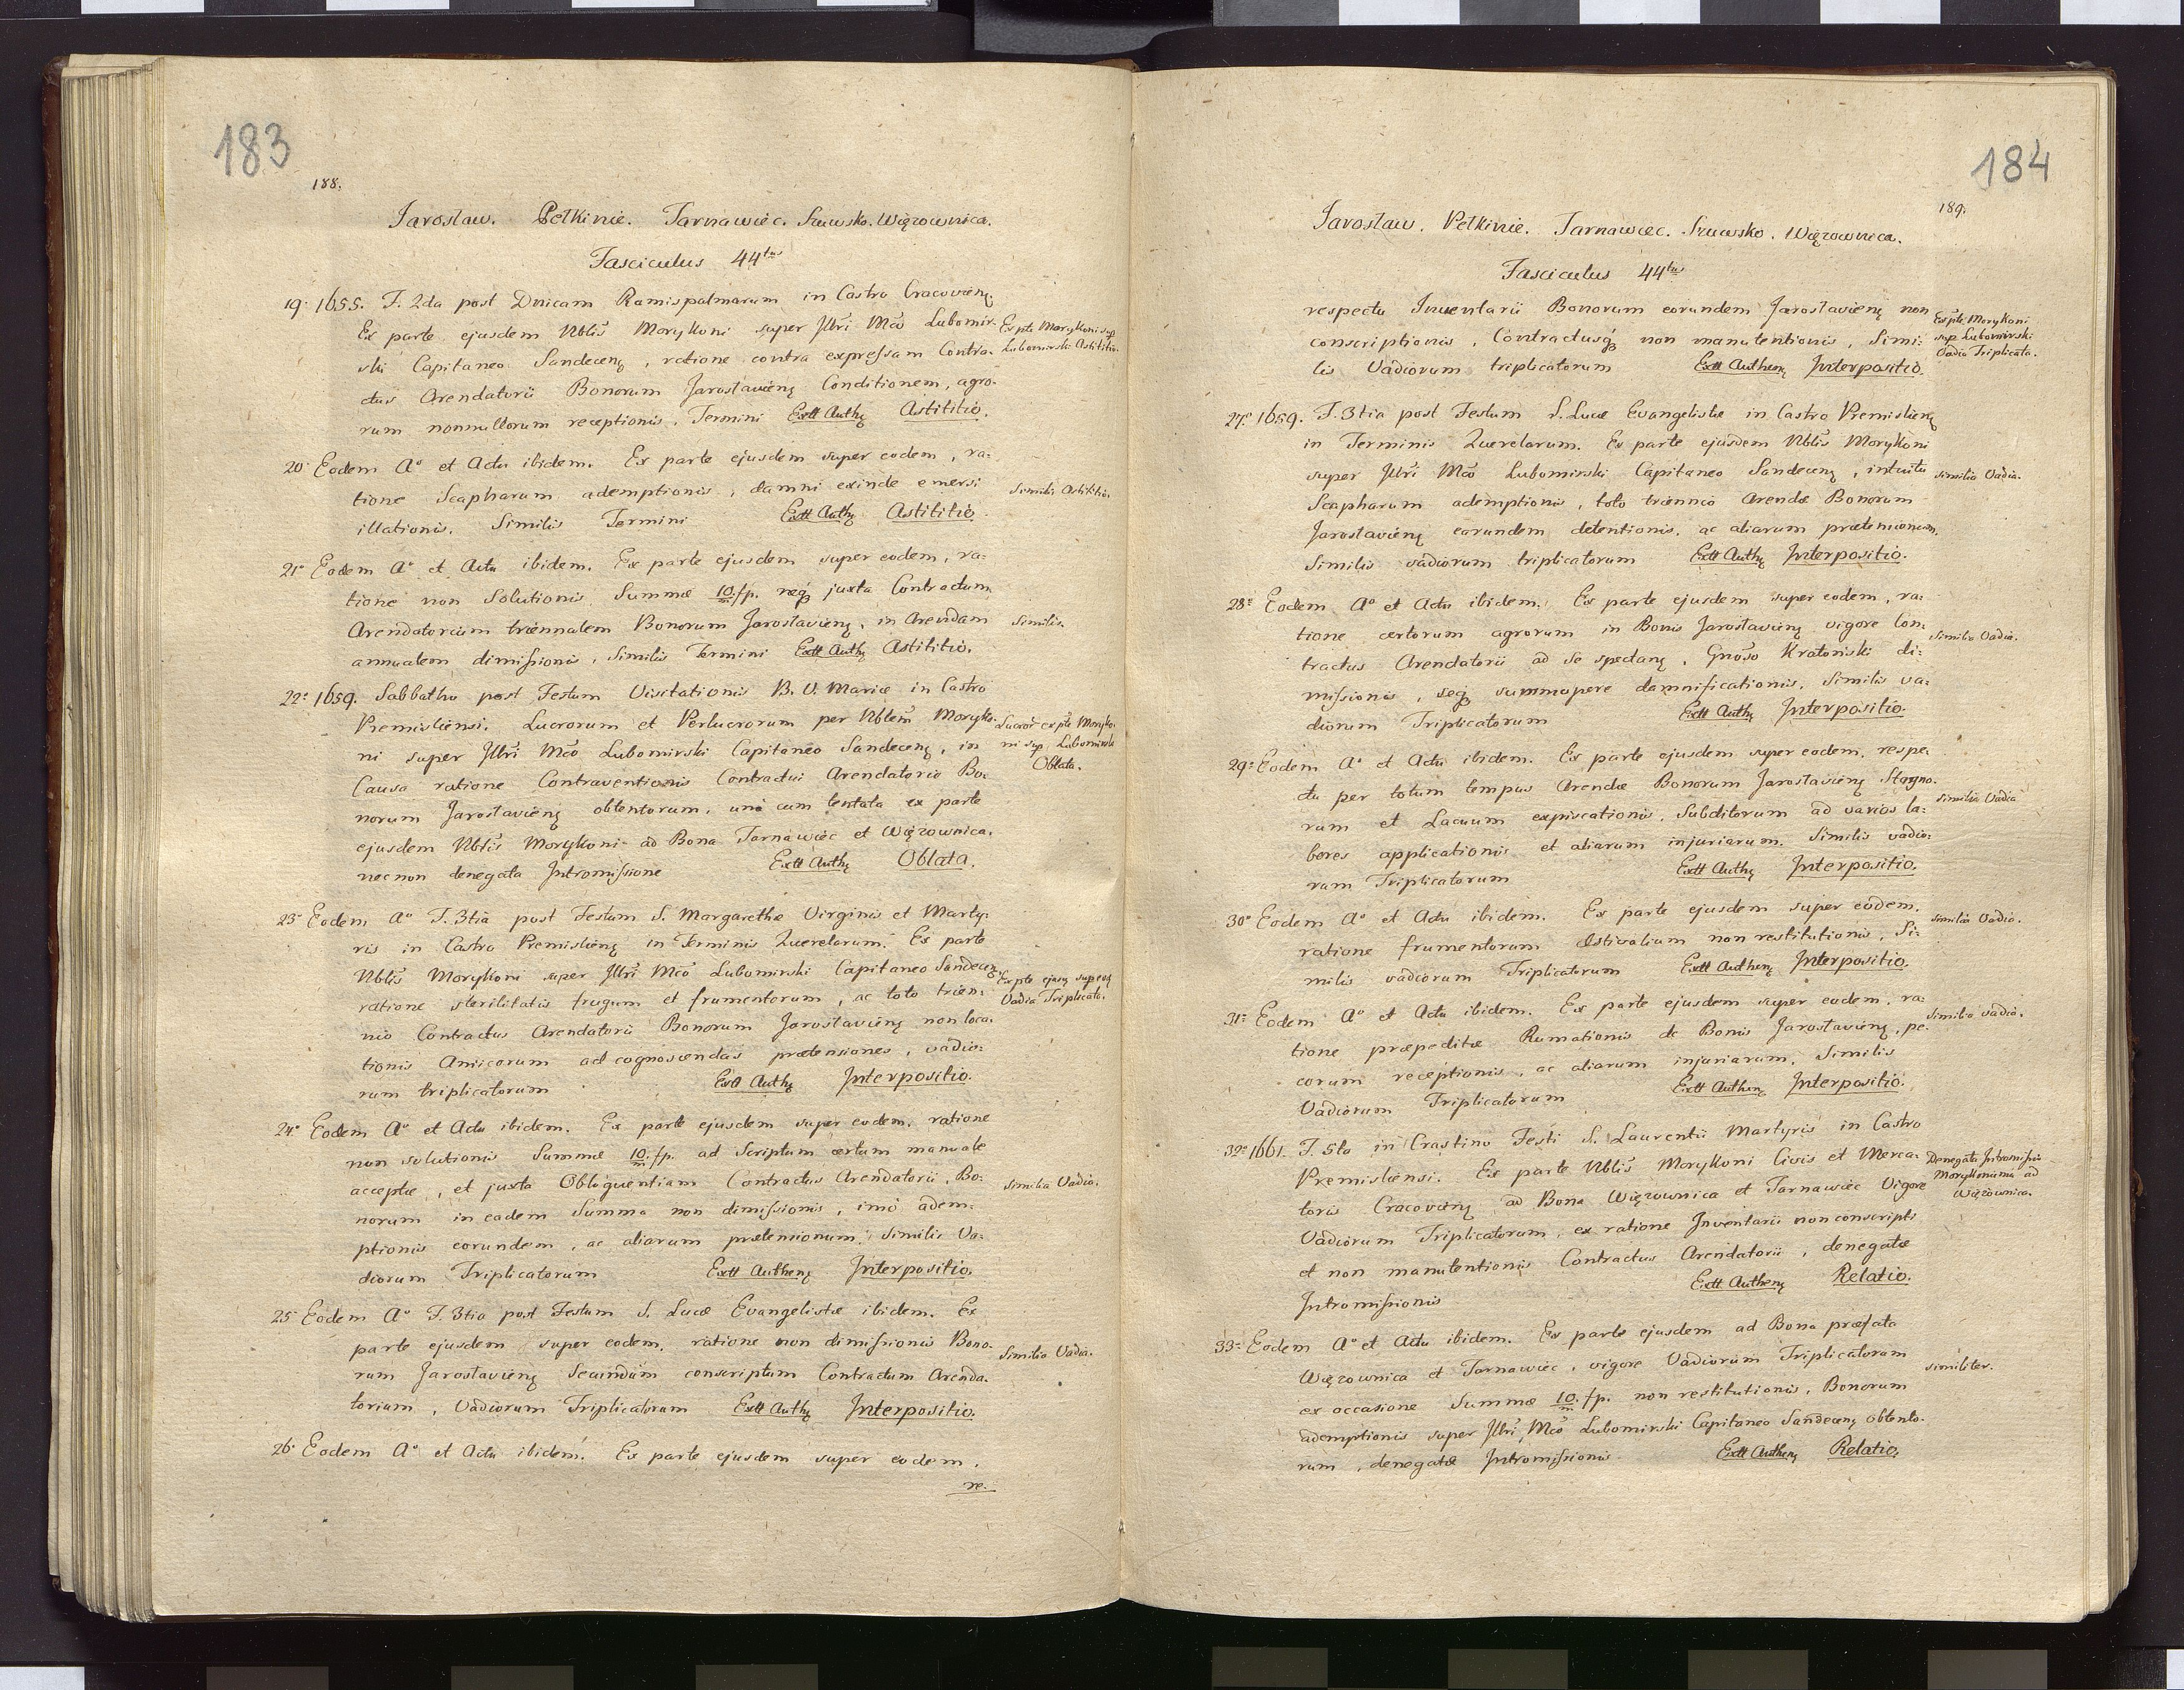 183
188.
Jarosław. Pełkinie. Tarnawiec. Szuwsko. Więzownica.
Fasciculus 44tus
19. 1655. F. 2da post Dnicam Ramispalmarum in Castro Cracovienȝ
Ex parte ejusdem Nblis Morykoni super Jllri Mco Lubomir-
Ex pte Morykoni sup
Lubomirski Astititio.
ski Capitaneo Sandecenȝ, ratione contra expressam Contra-
ctus Arendatorii Bonorum Jarosłavienȝ Conditionem, agro-
rum nonnullorum receptionis. Termini Extt Authȝ Astititio.
20. Eodem Ao et Actu ibidem. Ex parte ejusdem super eodem, ra-
tione Scapharum ademptionis, damni exinde emersi
Similis Astititio.
illationis. Similis Termini Extt Authȝ Astititio.
21. Eodem Ao et Actu ibidem. Ex parte ejusdem super eodem, ra-
tione non Solutionis Summæ 10/m fp. neqȝ juxta Contractum
Arendatorium triennalem Bonorum Jarosłavienȝ, in Arendam
Similis.
annualem dimissionis. Similis Termini Extt Authȝ Astititio.
22. 1659. Sabbatho post Festum Visitationis B. V. Mariæ in Castro
Premisliensi. Lucrorum et Perlucrorum per Nblem Moryko-
Lucror ex pte Moryko-
ni super Jllri Mco Lubomirski Capitaneo Sandecenȝ, in
ni sup. Lubomirski
Oblata.
Causa ratione Contraventionis Contractui Arendatorio Bo-
norum Jarosłavienȝ obtentorum, una cum tentata ex parte
ejusdem Nblis Morykoni ad Bona Tarnawiec et Więzownica.
necnon denegata Intromissione Extt Authȝ Oblata.
23. Eodem Ao F. 3tia post Festum S. Margarethæ Virginis et Marty-
ris in Castro Premislienȝ in Terminis Querelarum. Ex parte
Nblis Morykoni super Jllri Mco Lubomirski Capitaneo Sandecenȝ
Ex pte ejusȝ sup eodȝ
Vadia Triplicata.
ratione sterilitatis frugum et frumentorum, ac toto trien-
nio Contractus Arendatorii Bonorum Jarosłavienȝ non loca-
tionis Amicorum ad cognoscendas prætensiones, vadio-
rum triplicatorum Extt Authȝ Interpositio.
24. Eodem Ao et Actu ibidem. Ex parte ejusdem super eodem, ratione
non solutionis Summæ 10/m fp. ad Scriptum certum manuale
acceptæ, et juxta Obloquentiam Contractus Arendatorii, Bo-
Similia Vadia.
norum in eadem Summa non dimissionis, imo adem-
ptionis eorundem, ac aliarum prætensionum. Similis Va-
diorum Triplicatorum Extt Authenȝ Interpositio.
25 Eodem Ao F. 3tia post Festum S. Lucæ Evangelistæ ibidem. Ex
parte ejusdem super eodem, ratione non dimissionis Bono-
Similia Vadia.
rum Jarosłavienȝ Secundum conscriptum Contractum Arenda-
torium, Vadiorum Triplicatorum Extt Authȝ Interpositio.
26. Eodem Ao et Actu ibidem. Ex parte ejusdem super eodem,
re-
184
189.
Jarosław. Pełkinie. Tarnawiec. Szuwsko. Więzownica.
Fasciculus 44tus
respectu Inventarii Bonorum eorundem Jarosłavienȝ non
Ex pte Morykoni
sup Lubomirski
Vadia Triplicata.
conscriptionis, Contractusqȝ non manutentionis, Simi-
lis Vadiorum triplicatorum Extt Authenȝ Interpositio.
27. 1659. F. 3tia post Festum S. Lucæ Evangelistæ in Castro Premislienȝ
in Terminis Querelarum. Ex parte ejusdem Nblis Morykoni
super Jllri Mco Lubomirski Capitaneo Sandecenȝ, intuitu
Similia Vadia.
Scapharum ademptionis, toto triennio Arendæ Bonorum
Jarosłavienȝ earundem detentionis, ac aliarum prætensionum,
Similis vadiorum triplicatorum Extt Authȝ Interpositio.
28. Eodem Ao et Actu ibidem. Ex parte ejusdem super eodem, ra-
tione certorum agrorum in Bonis Jarosłavienȝ vigore Con-
Similia Vadia.
tractus Arendatorii ad se spectanȝ, Gnoso Kratoński di-
missionis, seqȝ summopere damnificationis. Similis va-
diorum Triplicatorum Extt Authȝ Interpositio.
29. Eodem Ao et Actu ibidem. Ex parte ejusdem super eodem, respe-
ctu per totum tempus Arendæ Bonorum Jarosłavienȝ Stagno-
Similia Vadia
rum et Lacuum expiscationis, Subditorum ad varios la-
bores applicationis et aliarum injuriarum. Similis vadio-
rum Triplicatorum Extt Authȝ Interpositio.
30. Eodem Ao et Actu ibidem. Ex parte ejusdem super eodem,
Similia Vadia.
ratione frumentorum æstivalium non restitutionis, Si-
milis vadiorum Triplicatorum Extt Authenȝ Interpositio.
31. Eodem Ao et Actu ibidem. Ex parte ejusdem super eodem, ra-
Similia vadia.
tione præpeditæ Rumationis de Bonis Jarosłavienȝ, pe-
corum receptionis, ac aliarum injuriarum. Similis
Vadiorum Triplicatorum Extt Authenȝ Interpositio.
32. 1661. F. 5ta in Crastino Festi S. Laurentii Martyris in Castro
Premisliensi. Ex parte Nblis Morykoni Civis et Merca-
Denegata Intromissio
Morykoniana ad
Więzownica.
toris Cracovienȝ ad Bona Więzownica et Tarnawiec Vigore
Vadiorum Triplicatorum, ex ratione Inventarii non conscripti
et non manutentionis Contractus Arendatorii, denegatæ
Intromissionis Extt Authenȝ Relatio.
33. Eodem Ao et Actu ibidem. Ex parte ejusdem ad Bona præfata
Więzownica et Tarnawiec, vigore Vadiorum Triplicatorum
similiter.
ex occasione Summæ 10/m fp. non restitutionis, Bonorum
ademptionis super Jllri Mco Lubomirski Capitaneo Sandecenȝ obtento-
rum, denegatæ Intromissionis Extt Authenȝ Relatio.